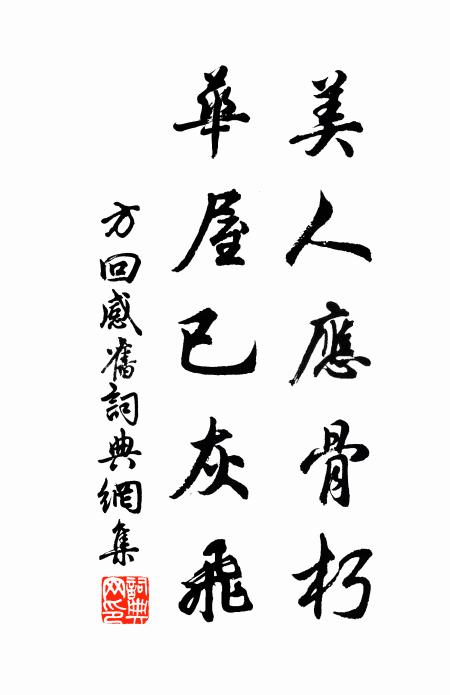 美人應骨朽
華屋已灰飛
方回感舊詞典網集
詞典網印